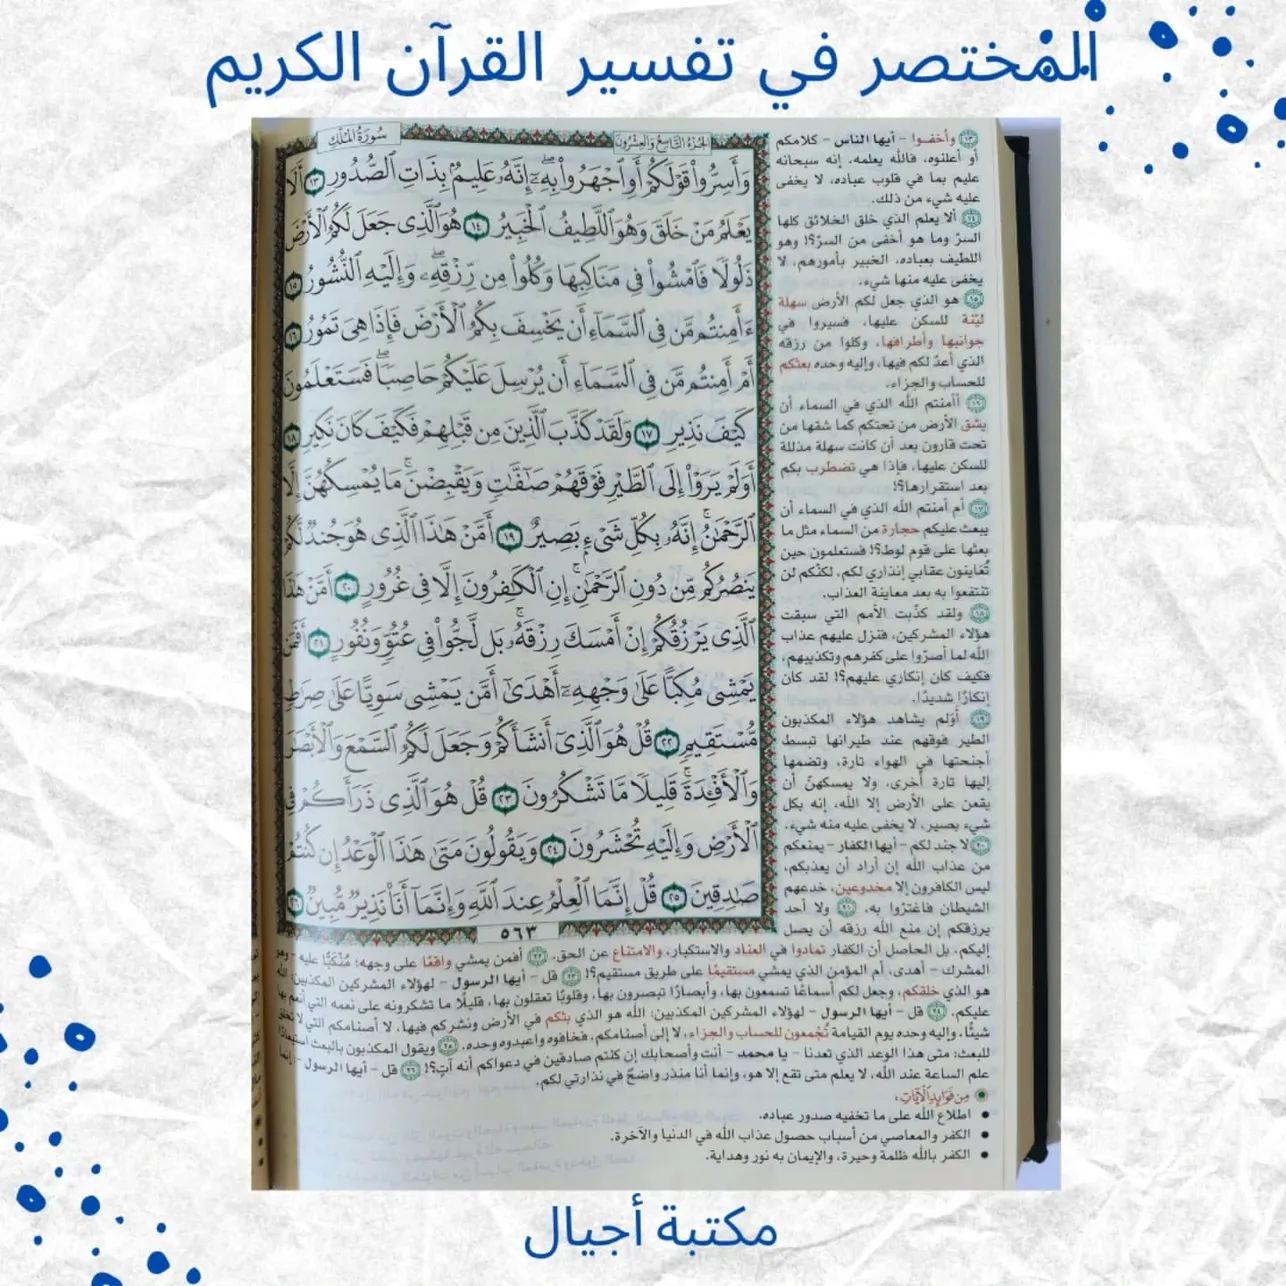 المُختصر في تفسير القرآن الكريم
سُورَةُ المُلْكِ
الجُزْءُ التَّاسِعُ وَالعِشْرُونَ
وَأَسِرُّواْ قَوۡلَكُمۡ أَوِ ٱجۡهَرُواْ بِهِۦٓۖ إِنَّهُۥ عَلِيمُۢ بِذَاتِ ٱلصُّدُورِ ١٣ أَلَا
يَعۡلَمُ مَنۡ خَلَقَ وَهُوَ ٱللَّطِيفُ ٱلۡخَبِيرُ ١٤ هُوَ ٱلَّذِي جَعَلَ لَكُمُ ٱلۡأَرۡضَ
ذَلُولٗا فَٱمۡشُواْ فِي مَنَاكِبِهَا وَكُلُواْ مِن رِّزۡقِهِۦۖ وَإِلَيۡهِ ٱلنُّشُورُ ١٥
ءَأَمِنتُم مَّن فِي ٱلسَّمَآءِ أَن يَخۡسِفَ بِكُمُ ٱلۡأَرۡضَ فَإِذَا هِيَ تَمُورُ ١٦
أَمۡ أَمِنتُم مَّن فِي ٱلسَّمَآءِ أَن يُرۡسِلَ عَلَيۡكُمۡ حَاصِبٗاۖ فَسَتَعۡلَمُونَ
كَيۡفَ نَذِيرِ ١٧ وَلَقَدۡ كَذَّبَ ٱلَّذِينَ مِن قَبۡلِهِمۡ فَكَيۡفَ كَانَ نَكِيرِ ١٨
أَوَلَمۡ يَرَوۡاْ إِلَى ٱلطَّيۡرِ فَوۡقَهُمۡ صَٰٓفَّٰتٖ وَيَقۡبِضۡنَۚ مَا يُمۡسِكُهُنَّ إِلَّا
ٱلرَّحۡمَٰنُۚ إِنَّهُۥ بِكُلِّ شَيۡءِۭ بَصِيرٌ ١٩ أَمَّنۡ هَٰذَا ٱلَّذِي هُوَ جُندٞ لَّكُمۡ
يَنصُرُكُم مِّن دُونِ ٱلرَّحۡمَٰنِۚ إِنِ ٱلۡكَٰفِرُونَ إِلَّا فِي غُرُورٍ ٢٠ أَمَّنۡ هَٰذَا
ٱلَّذِي يَرۡزُقُكُمۡ إِنۡ أَمۡسَكَ رِزۡقَهُۥۚ بَل لَّجُّواْ فِي عُتُوّٖ وَنُفُورٍ ٢١ أَفَمَن
يَمۡشِي مُكِبًّا عَلَىٰ وَجۡهِهِۦٓ أَهۡدَىٰٓ أَمَّن يَمۡشِي سَوِيًّا عَلَىٰ صِرَٰطٖ
مُّسۡتَقِيمٖ ٢٢ قُلۡ هُوَ ٱلَّذِيٓ أَنشَأَكُمۡ وَجَعَلَ لَكُمُ ٱلسَّمۡعَ وَٱلۡأَبۡصَٰرَ
وَٱلۡأَفۡـِٔدَةَۚ قَلِيلٗا مَّا تَشۡكُرُونَ ٢٣ قُلۡ هُوَ ٱلَّذِي ذَرَأَكُمۡ فِي
ٱلۡأَرۡضِ وَإِلَيۡهِ تُحۡشَرُونَ ٢٤ وَيَقُولُونَ مَتَىٰ هَٰذَا ٱلۡوَعۡدُ إِن كُنتُمۡ
صَٰدِقِينَ ٢٥ قُلۡ إِنَّمَا ٱلۡعِلۡمُ عِندَ ٱللَّهِ وَإِنَّمَآ أَنَا۠ نَذِيرٞ مُّبِينٞ ٢٦
٥٦٣
١٣ وأخفوا - أيها الناس - كلامكم
أو أعلنوه، فالله يعلمه. إنه سبحانه
عليم بما في قلوب عباده، لا يخفى
عليه شيء من ذلك.
١٤ ألا يعلم الذي خلق الخلائق كلها
السرّ وما هو أخفى من السرّ؟! وهو
اللطيف بعباده، الخبير بأمورهم، لا
يخفى عليه منها شيء.
١٥ هو الذي جعل لكم الأرض سهلة
ليّنة للسكن عليها، فسيروا في
جوانبها وأطرافها، وكلوا من رزقه
الذي أعدّ لكم فيها، وإليه وحده بعثكم
للحساب والجزاء.
١٦ أأمنتم الله الذي في السماء أن
يشق الأرض من تحتكم كما شقها من
تحت قارون بعد أن كانت سهلة مذللة
للسكن عليها، فإذا هي تضطرب بكم
بعد استقرارها؟!
١٧ أم أمنتم الله الذي في السماء أن
يبعث عليكم حجارة من السماء مثل ما
بعثها على قوم لوط؟! فستعلمون حين
تُعاينون عقابي إنذاري لكم، لكنّكم لن
تنتفعوا به بعد معاينة العذاب.
١٨ ولقد كذّبت الأمم التي سبقت
هؤلاء المشركين، فنزل عليهم عذاب
الله لما أصرّوا على كفرهم وتكذيبهم،
فكيف كان إنكاري عليهم؟! لقد كان
إنكارًا شديدًا.
١٩ أَوَلم يشاهد هؤلاء المكذبون
الطير فوقهم عند طيرانها تبسط
أجنحتها في الهواء تارة، وتضمها
إليها تارة أخرى، ولا يمسكهنّ أن
يقعن على الأرض إلا الله، إنه بكل
شيء بصير، لا يخفى عليه منه شيء.
٢٠ لا جند لكم - أيها الكفار - يمنعكم
من عذاب الله إن أراد أن يعذبكم،
ليس الكافرون إلا مخدوعين، خدعهم
الشيطان فاغترّوا به. ٢١ ولا أحد
يرزقكم إن منع الله رزقه أن يصل
إليكم، بل الحاصل أن الكفار تمادوا في العناد والاستكبار، والامتناع عن الحق. ٢٢ أفمن يمشي واقعًا على وجهه؛ مُنْكَبًّا عليه - وهو
المشرك - أهدى، أم المؤمن الذي يمشي مستقيمًا على طريق مستقيم؟! ٢٣ قل - أيها الرسول - لهؤلاء المشركين المكذبين: الله
هو الذي خلقكم، وجعل لكم أسماعًا تسمعون بها، وأبصارًا تبصرون بها، وقلوبًا تعقلون بها، قليلًا ما تشكرونه على نعمه التي أنعم بها
عليكم. ٢٤ قل - أيها الرسول - لهؤلاء المشركين المكذبين: الله هو الذي بثكم في الأرض ونشركم فيها، لا أصنامكم التي لا تخلق
شيئًا، وإليه وحده يوم القيامة تُجمعون للحساب والجزاء، لا إلى أصنامكم، فخافوه واعبدوه وحده. ٢٥ ويقول المكذبون بالبعث استبعادًا
للبعث: متى هذا الوعد الذي تعدنا - يا محمد - أنت وأصحابك إن كنتم صادقين في دعواكم أنه آتٍ؟! ٢٦ قل - أيها الرسول -: إنما
علم الساعة عند الله، لا يعلم متى تقع إلا هو، وإنما أنا منذر واضحٌ في نذارتي لكم.
مِن فَوَائِدِ الآيَاتِ:
اطلاع الله على ما تخفيه صدور عباده.
الكفر والمعاصي من أسباب حصول عذاب الله في الدنيا والآخرة.
الكفر بالله ظلمة وحيرة، والإيمان به نور وهداية.
مكتبة أجيال